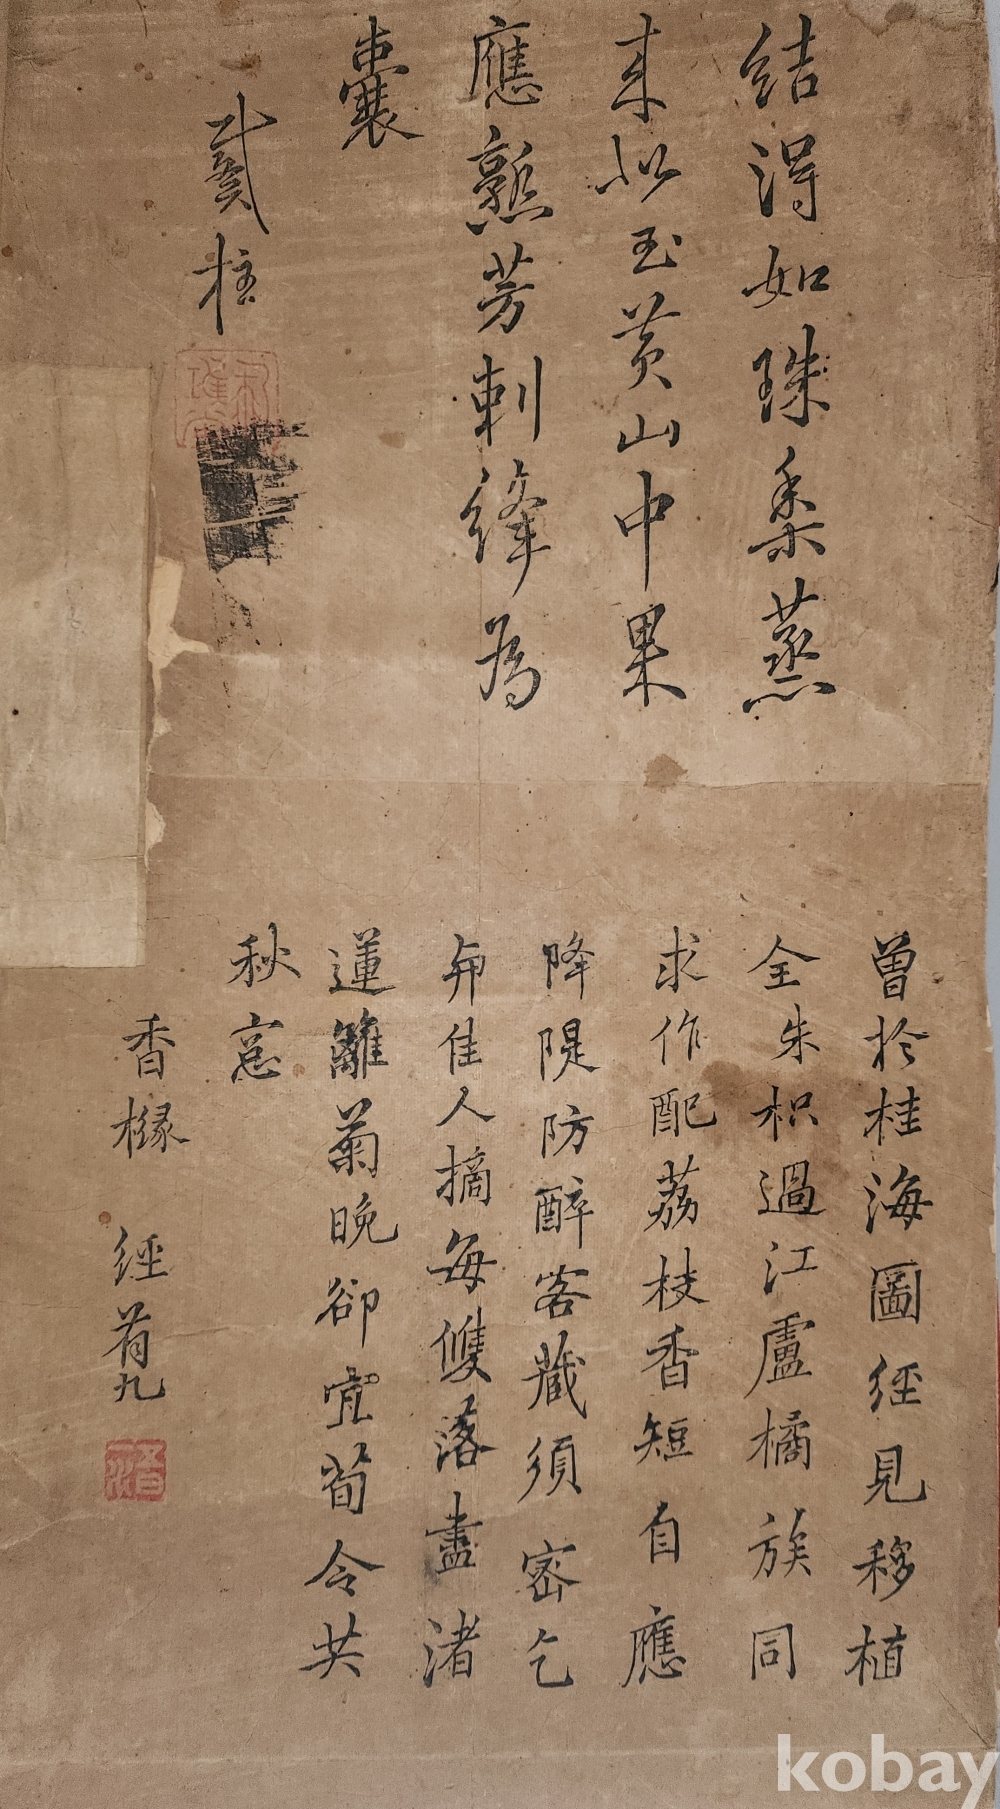 結得如珠黍蒸
来似玉黄山中果
應熟芳刺絳為
囊
貳柱
曽於桂海圖經見移植
全朱枳過江盧橘族同
求作配荔枝香短自應
降隄防醉客藏須密乞
佳人摘每雙落盡渚
蓮離菊晚卻宜荀令共
秋窓
香櫞 經荀九
kobay